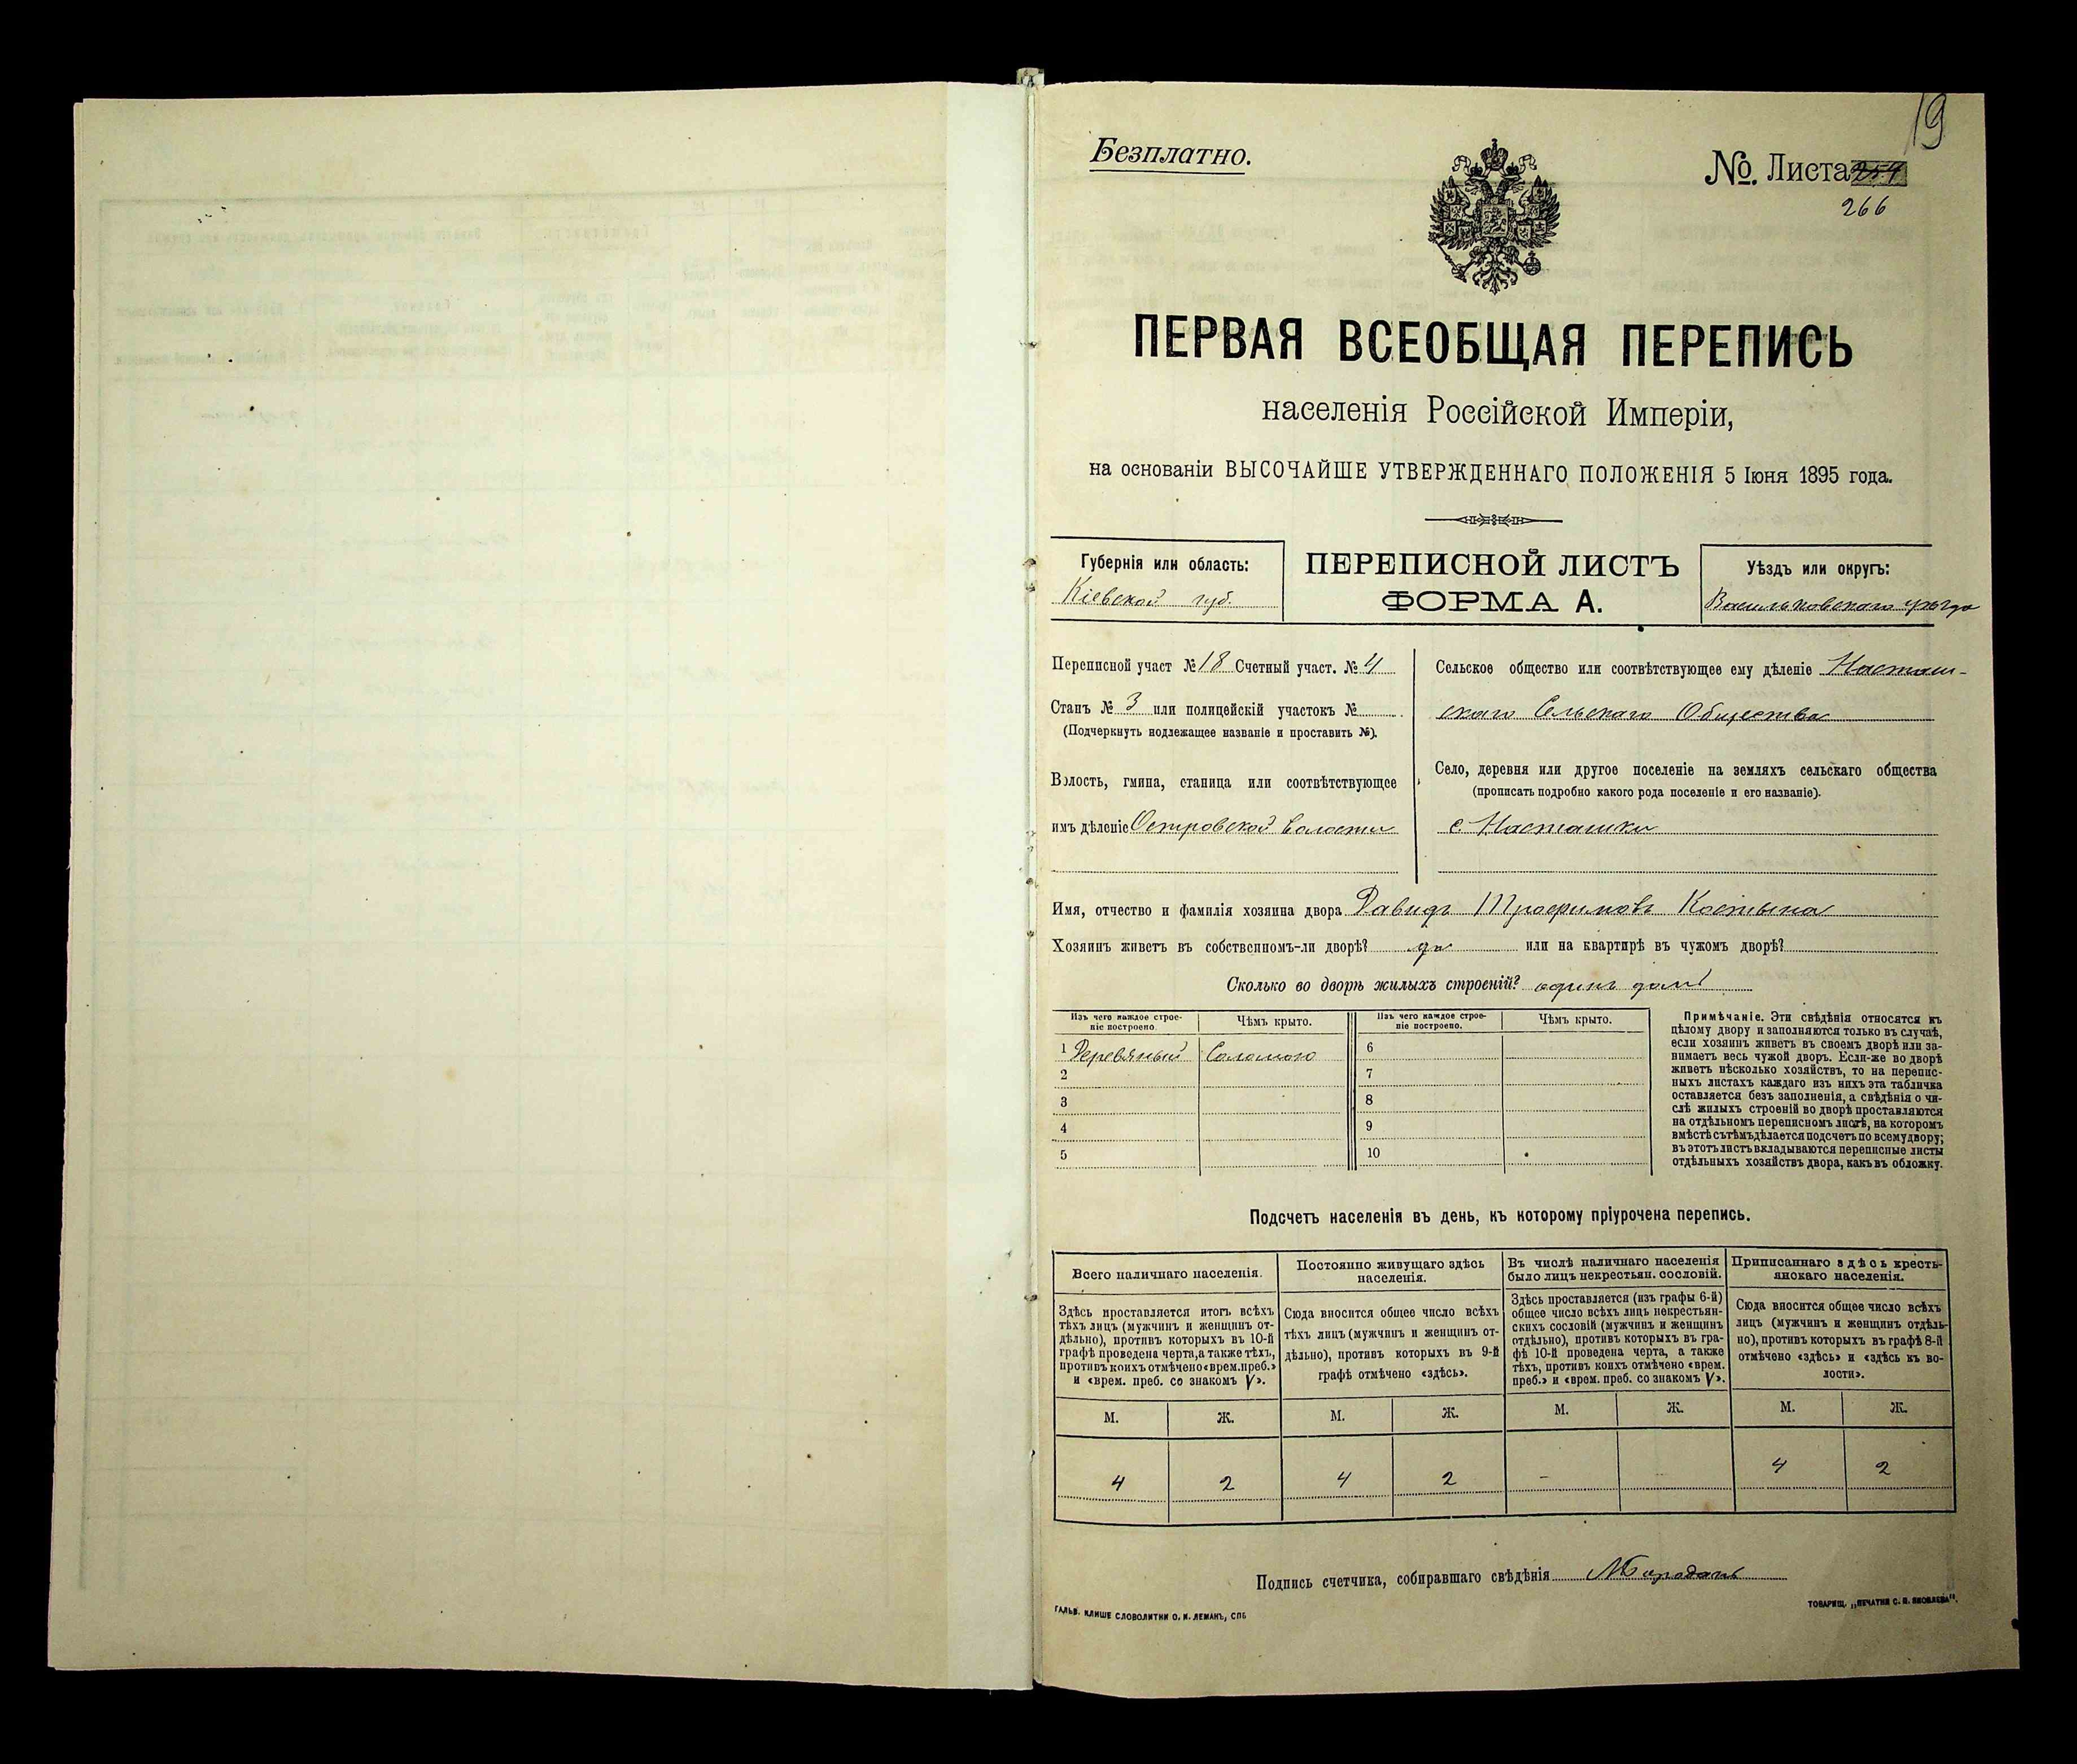 19
Безплатно.
№. Листа
266
ПЕРВАЯ ВСЕОБЩАЯ ПЕРЕПИСЬ
населенія Россійской Имперіи,
на основаніи ВЫСОЧАЙШЕ УТВЕРЖДЕННАГО ПОЛОЖЕНІЯ 5 Іюня 1895 года.
Губернія или область:
Кіевской губ.
ПЕРЕПИСНОЙ ЛИСТЪ
ФОРМА А.
Уѣздъ или округъ:
Васильковскаго уѣзда
Переписной участ № 18 Счетный участ. № 4
Станъ № 3 или полицейскій участокъ №
(Подчеркнуть подлежащее названіе и проставить №).
Волость, гмина, станица или соотвѣтствующее
имъ дѣленіе Островской волости
Сельское общество или соотвѣтствующее ему дѣленіе Насташ-
скаго Сельскаго Общества
Село, деревня или другое поселеніе на земляхъ сельскаго общества
(прописать подробно какого рода поселеніе и его названіе).
с Насташки
Имя, отчество и фамилія хозяина двора Давидъ Трофимовъ Костына
Хозяинъ живетъ въ собственномъ-ли дворѣ? да или на квартирѣ въ чужомъ дворѣ?
Сколько во дворѣ жилыхъ строеній? одинъ домъ
Изъ чего каждое строе-
ніе построено.
Чѣмъ крыто.
Изъ чего каждое строе-
ніе построено.
Чѣмъ крыто.
1 Деревяный Соломою 6
2 7
3 8
4 9
5 10
Примѣчаніе. Эти свѣдѣнія относятся къ
цѣлому двору и заполняются только въ случаѣ,
если хозяинъ живетъ въ своемъ дворѣ или за-
нимаетъ весь чужой дворъ. Если-же во дворѣ
живетъ нѣсколько хозяйствъ, то на перепис-
ныхъ листахъ каждаго изъ нихъ эта табличка
оставляется безъ заполненія, а свѣдѣнія о чи-
слѣ жилыхъ строеній во дворѣ проставляются
на отдѣльномъ переписномъ листѣ, на которомъ
вмѣстѣ съ тѣмъ дѣлается подсчетъ по всему двору;
въ этотъ листъ вкладываются переписные листы
отдѣльныхъ хозяйствъ двора, какъ въ обложку.
Подсчетъ населенія въ день, къ которому пріурочена перепись.
Всего наличнаго населенія.
Здѣсь проставляется итогъ всѣхъ
тѣхъ лицъ (мужчинъ и женщинъ от-
дѣльно), противъ которыхъ въ 10-й
графѣ проведена черта, а также тѣхъ,
противъ коихъ отмѣчено «врем. преб.»
и «врем. преб. со знакомъ V».
Постоянно живущаго здѣсь
населенія.
Сюда вносится общее число всѣхъ
тѣхъ лицъ (мужчинъ и женщинъ от-
дѣльно), противъ которыхъ въ 9-й
графѣ отмѣчено «здѣсь».
Въ числѣ наличнаго населенія
было лицъ некрестьян. сословій.
Здѣсь проставляется (изъ графы 6-й)
общее число всѣхъ лицъ некрестьян-
скихъ сословій (мужчинъ и женщинъ
отдѣльно), противъ которыхъ въ гра-
фѣ 10-й проведена черта, а также
тѣхъ, противъ коихъ отмѣчено «врем.
преб.» и «врем. преб. со знакомъ V».
Приписаннаго здѣсь кресть-
янскаго населенія.
Сюда вносится общее число всѣхъ
лицъ (мужчинъ и женщинъ отдѣль-
но), противъ которыхъ въ графѣ 8-й
отмѣчено «здѣсь» и «здѣсь къ во-
лости».
М. Ж. М. Ж. М. Ж. М. Ж.
4 2 4 2 - - 4 2
Подпись счетчика, собиравшаго свѣдѣнія
ГАЛЬВ. КЛИШЕ СЛОВОЛИТНИ О. И. ЛЕМАНЪ, СПБ
ТОВАРИЩ. „ПЕЧАТНЯ С. П. ЯКОВЛЕВА“.